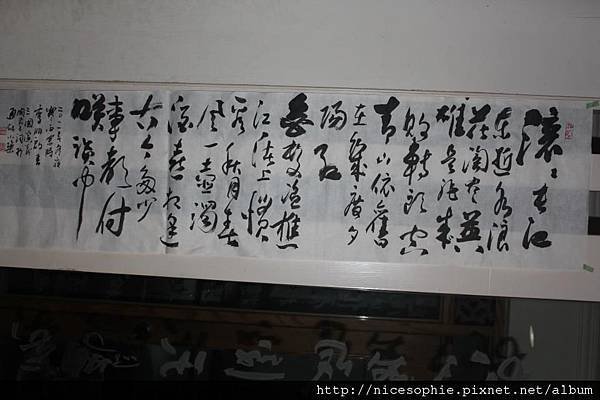 滚々長江
東逝水浪
花淘尽英
雄是非成
敗轉頭空
青山依舊
在幾度夕
陽紅
白髮漁樵
江渚上惯
看秋月春
风一壶濁
酒喜相逢
古今多少
事都付
笑談中
http://nicesophie.pixnet.net/album